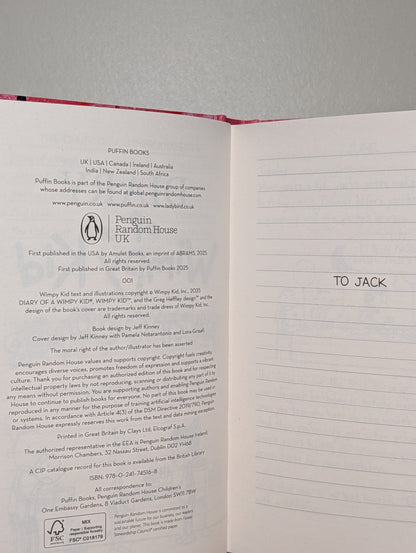 PUFFIN BOOKS
UK | USA | Canada | Ireland | Australia
India | New Zealand | South Africa
Puffin Books is part of the Penguin Random House group of companies
whose addresses can be found at global.penguinrandomhouse.com.
www.penguin.co.uk www.puffin.co.uk www.ladybird.co.uk
Penguin
Random House
UK
First published in the USA by Amulet Books, an imprint of ABRAMS, 2025
All rights reserved.
First published in Great Britain by Puffin Books 2025
001
Wimpy Kid text and illustrations copyright © Wimpy Kid, Inc., 2025
DIARY OF A WIMPY KID®, WIMPY KID™, and the Greg Heffley design™ and the
design of the book's cover are trademarks and trade dress of Wimpy Kid, Inc.
All rights reserved.
Book design by Jeff Kinney
Cover design by Jeff Kinney with Pamela Notarantonio and Lora Grisafi
The moral right of the author/illustrator has been asserted
Penguin Random House values and supports copyright. Copyright fuels creativity,
encourages diverse voices, promotes freedom of expression and supports a vibrant
culture. Thank you for purchasing an authorized edition of this book and for respecting
intellectual property laws by not reproducing, scanning or distributing any part of it by
any means without permission. You are supporting authors and enabling Penguin Random
House to continue to publish books for everyone. No part of this book may be used or
reproduced in any manner for the purpose of training artificial intelligence technologies
or systems. In accordance with Article 4(3) of the DSM Directive 2019/790, Penguin
Random House expressly reserves this work from the text and data mining exception.
Printed in Great Britain by Clays Ltd, Elcograf S.p.A.
The authorized representative in the EEA is Penguin Random House Ireland,
Morrison Chambers, 32 Nassau Street, Dublin D02 YH68
A CIP catalogue record for this book is available from the British Library
ISBN: 978-0-241-74516-8
All correspondence to:
Puffin Books, Penguin Random House Children's
One Embassy Gardens, 8 Viaduct Gardens, London SW11 7BW
FSC
www.fsc.org
MIX
Paper | Supporting
responsible forestry
FSC® C018179
Penguin Random House is committed to a
sustainable future for our business, our readers
and our planet. This book is made from Forest
Stewardship Council® certified paper.
TO JACK